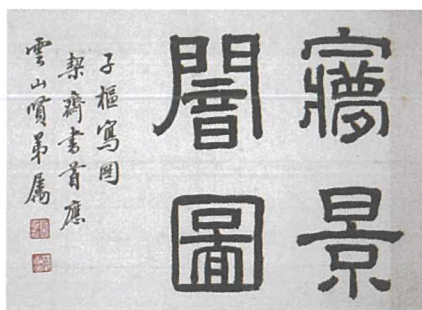 㝱景
闇圖
子樞寫圖
栔齋書首應
雲山賢弟屬